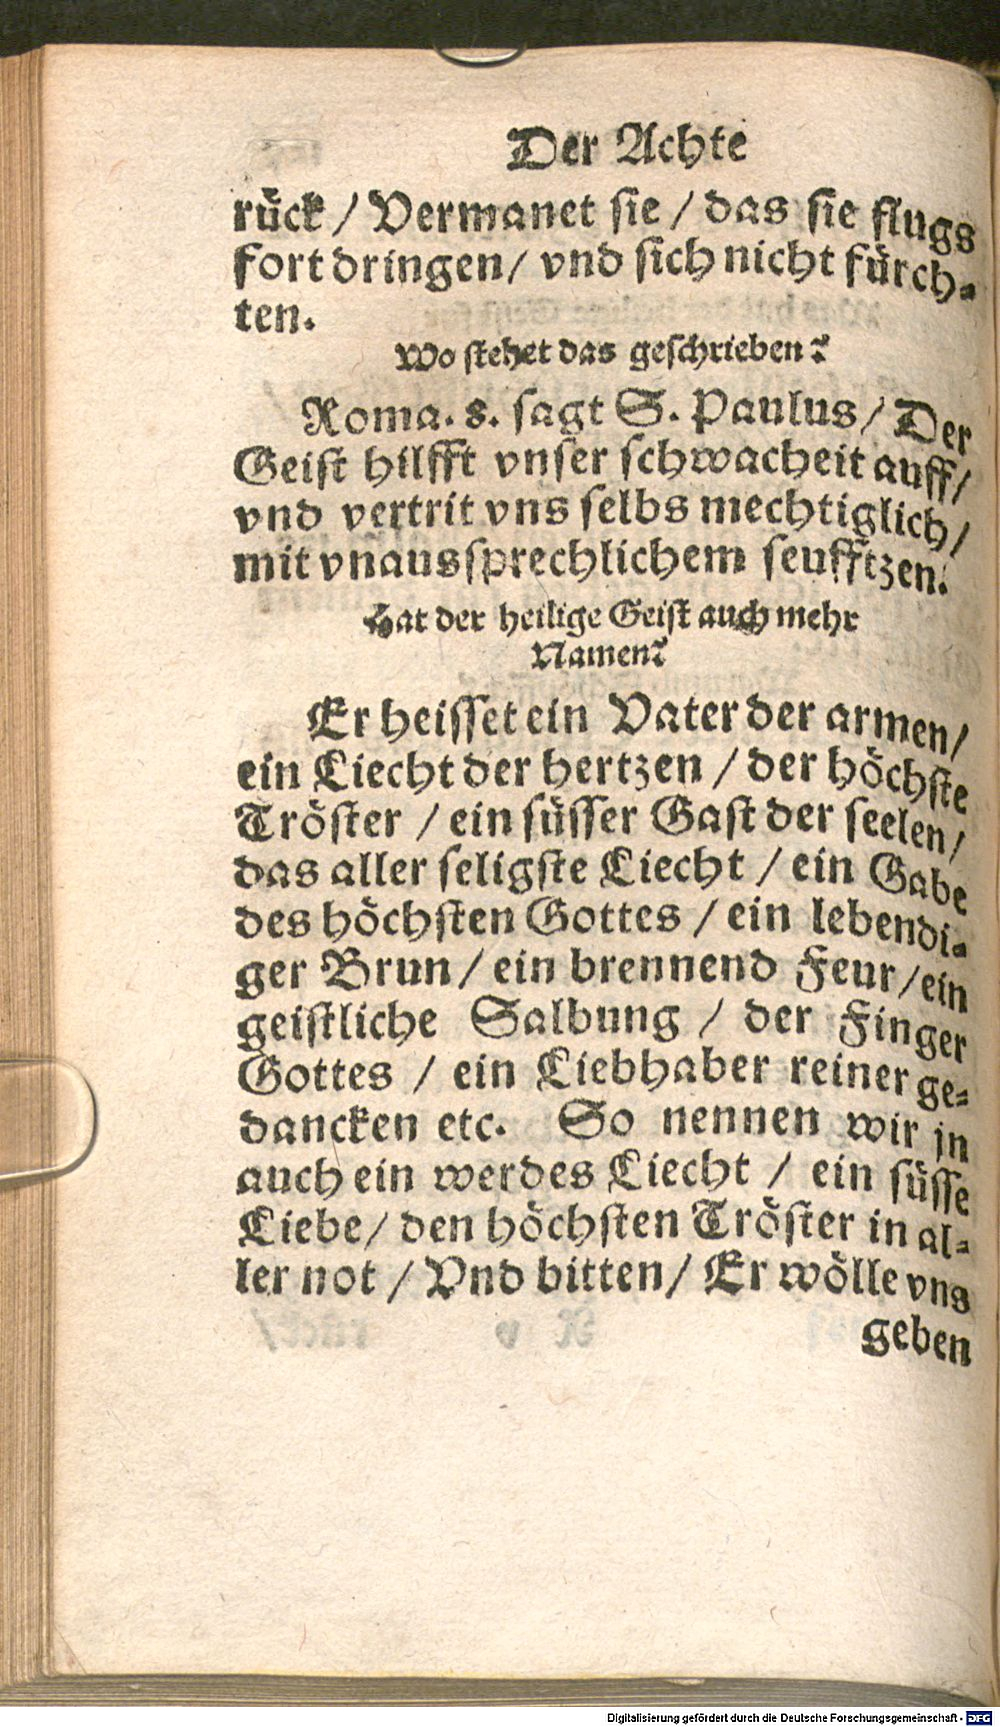 Der Achte
rück / Vermanet sie / das sie flugs
fort dringen / vnd sich nicht fürch-
ten.
Wo stehet das geschrieben?
Roma. 8. sagt S. Paulus / Der
Geist hilfft vnser schwacheit auff /
vnd vertrit vns selbs mechtiglich /
mit vnaussprechlichem seufftzen.
Hat der heilige Geist auch mehr
Namen?
Er heisset ein Vater der armen /
ein Liecht der hertzen / der höchste
Tröster / ein süsser Gast der seelen /
das aller seligste Liecht / ein Gabe
des höchsten Gottes / ein lebendi-
ger Brun / ein brennend Feur / ein
geistliche Salbung / der Finger
Gottes / ein Liebhaber reiner ge-
dancken etc. So nennen wir jn
auch ein werdes Liecht / ein süsse
Liebe / den höchsten Tröster in al-
ler not / Vnd bitten / Er wölle vns
geben
Digitalisierung gefördert durch die Deutsche Forschungsgemeinschaft - DFG